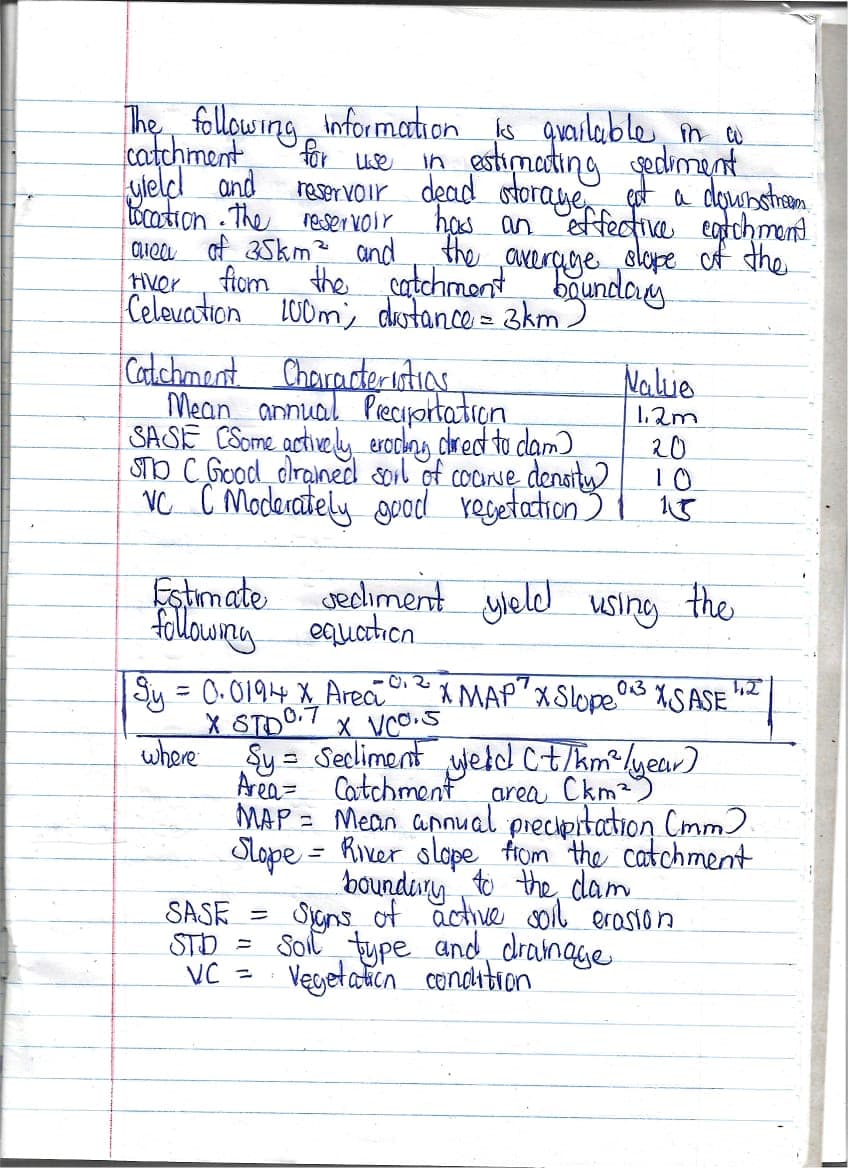 The following information is available in a
catchment for use in estimating sediment
yield and reservoir dead storage at a downstream
location. The reservoir has an effective catchment
area of 35km² and the average slope of the
river from the catchment boundary
(elevation 100m; distance = 3km)
Catchment Characteristics Value
Mean annual Precipitation 1.2m
SASE (Some actively eroding direct to dam) 20
STD (Good drained soil of coarse density) 10
VC (Moderately good vegetation) 15
Estimate sediment yield using the
following equation
Sy = 0.0194 x Area⁻⁰·² x MAP⁷ x Slope⁰·³ x SASE¹·²
x STD⁰·⁷ x VC⁰·⁵
where Sy = Sediment yield (t/km²/year)
Area = Catchment area (km²)
MAP = Mean annual precipitation (mm)
Slope = River slope from the catchment
boundary to the dam
SASE = Signs of active soil erosion
STD = Soil type and drainage
VC = Vegetation condition